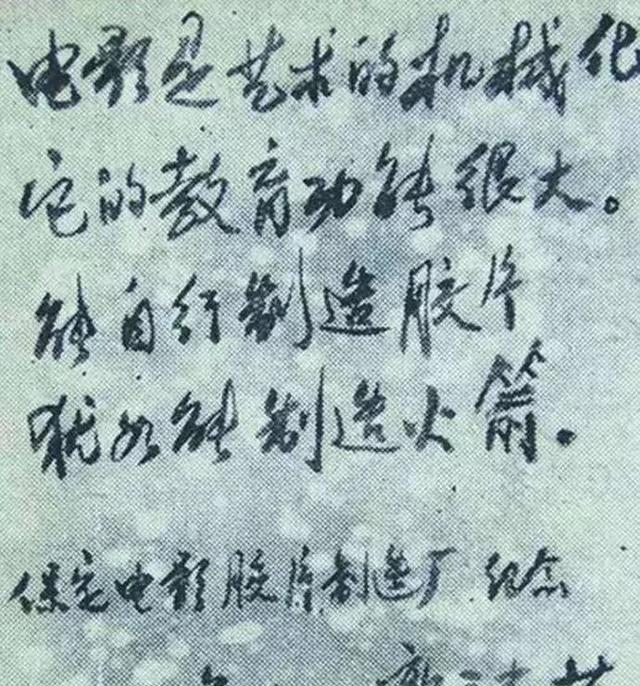 电影是艺术的机械化
它的教育功能很大。
能自行制造胶片
犹如能制造火箭。
保定电影胶片制造厂 纪念